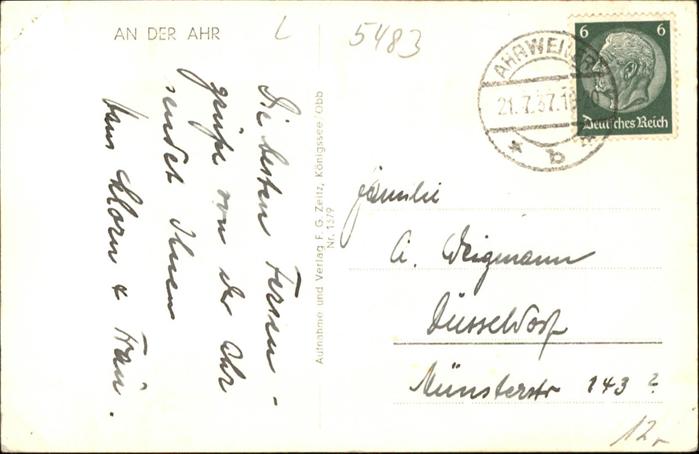 AN DER AHR
L
5483
Die besten Ferien-
grüße von der Ahr
sendet Ihnen
Hans & Frau.
Aufnahme und Verlag F. G. Zeitz, Königssee/Obb
Nr. 1379
AHRWEILER
21.7.37.18
* b *
6 6
Deutsches Reich
Familie
A. Weigmann
Düsseldorf
Münsterstr 143 ?
12,-